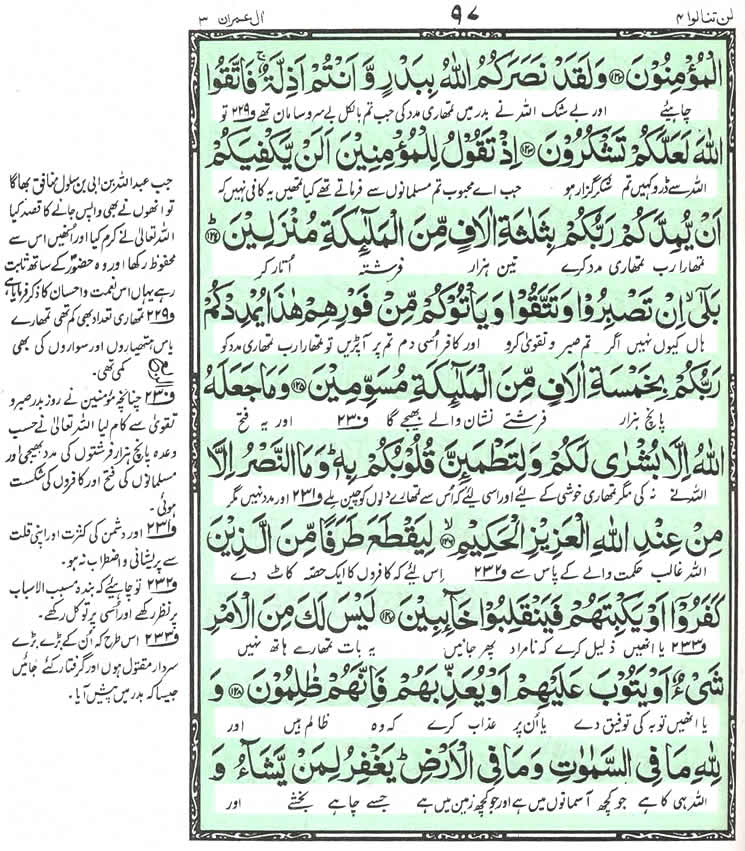 لن تنالوا ۴
۹۷
اٰل عمران ۳
الْمُؤْمِنُوْنَ ﴿۱۲۲﴾ وَلَقَدْ نَصَرَكُمُ اللّٰهُ بِبَدْرٍ وَّاَنْتُمْ اَذِلَّةٌ ۚ فَاتَّقُوا
چاہیئے اور بے شک اللہ نے بدر میں تمھاری مدد کی جب تم بالکل بے سروسامان تھے و۲۲۹ تو
اللّٰهَ لَعَلَّكُمْ تَشْكُرُوْنَ ﴿۱۲۳﴾ اِذْ تَقُوْلُ لِلْمُؤْمِنِيْنَ اَلَنْ يَّكْفِيَكُمْ
اللہ سے ڈرو کہیں تم شکر گزار ہو جب اے محبوب تم مسلمانوں سے فرماتے تھے کیا تمھیں یہ کافی نہیں کہ
اَنْ يُّمِدَّكُمْ رَبُّكُمْ بِثَلٰثَةِ اٰلَافٍ مِّنَ الْمَلٰٓئِكَةِ مُنْزَلِيْنَ ﴿۱۲۴﴾ؕ
تمھارا رب تمھاری مدد کرے تین ہزار فرشتہ اُتار کر
بَلٰٓى ۙ اِنْ تَصْبِرُوْا وَتَتَّقُوْا وَيَاْتُوْكُمْ مِّنْ فَوْرِهِمْ هٰذَا يُمْدِدْكُمْ
ہاں کیوں نہیں اگر تم صبر و تقویٰ کرو اور کافر اُسی دم تم پر آپڑیں تو تمھارا رب تمھاری مدد کو
رَبُّكُمْ بِخَمْسَةِ اٰلَافٍ مِّنَ الْمَلٰٓئِكَةِ مُسَوِّمِيْنَ ﴿۱۲۵﴾ وَمَا جَعَلَهُ
پانچ ہزار فرشتے نشان والے بھیجے گا و۲۳۰ اور یہ فتح
اللّٰهُ اِلَّا بُشْرٰى لَكُمْ وَلِتَطْمَئِنَّ قُلُوْبُكُمْ بِهٖ ؕ وَمَا النَّصْرُ اِلَّا
اللہ نے نہ کی مگر تمھاری خوشی کے لیئے اور اسی لیئے کہ اُس سے تمھارے دلوں کو چین ملے و۲۳۱ اور مدد نہیں مگر
مِنْ عِنْدِ اللّٰهِ الْعَزِيْزِ الْحَكِيْمِ ﴿۱۲۶﴾ۙ لِيَقْطَعَ طَرَفًا مِّنَ الَّذِيْنَ
اللہ غالب حکمت والے کے پاس سے و۲۳۲ اِس لیئے کہ کافروں کا ایک حصّہ کاٹ دے
كَفَرُوْٓا اَوْ يَكْبِتَهُمْ فَيَنْقَلِبُوْا خَآئِبِيْنَ ﴿۱۲۷﴾ لَيْسَ لَكَ مِنَ الْاَمْرِ
و۲۳۳ یا انھیں ذلیل کرے کہ نامراد پھر جائیں یہ بات تمھارے ہاتھ نہیں
شَىْءٌ اَوْ يَتُوْبَ عَلَيْهِمْ اَوْ يُعَذِّبَهُمْ فَاِنَّهُمْ ظٰلِمُوْنَ ﴿۱۲۸﴾ وَ
یا انھیں توبہ کی توفیق دے یا اُن پر عذاب کرے کہ وہ ظالم ہیں اور
لِلّٰهِ مَا فِى السَّمٰوٰتِ وَمَا فِى الْاَرْضِ ؕ يَغْفِرُ لِمَنْ يَّشَآءُ وَ
اللہ ہی کا ہے جو کچھ آسمانوں میں ہے اور جو کچھ زمین میں ہے جسے چاہے بخشے اور
جب عبداللہ بن ابی بن سلول منافق بھاگا
تو انھوں نے بھی واپس جانے کا قصد کیا
اللہ تعالیٰ نے کرم کیا اور اُنھیں اس سے
محفوظ رکھا اور وہ حضور کے ساتھ ثابت
رہے یہاں اس نعمت و احسان کا ذکر فرمایا ہے
و۲۲۹ تمھاری تعداد بھی کم تھی تمھارے
پاس ہتھیاروں اور سواروں کی بھی
کمی تھی۔
و۲۳۰ چنانچہ مؤمنین نے روز بدر صبر و
تقویٰ سے کام لیا اللہ تعالیٰ نے حسب
وعدہ پانچ ہزار فرشتوں کی مدد بھیجی اور
مسلمانوں کی فتح اور کافروں کی شکست
ہوئی۔
و۲۳۱ اور دشمن کی کثرت اور اپنی قلت
سے پریشانی و اضطراب نہ ہو۔
و۲۳۲ تو چاہیئے کہ بندہ مسبب الاسباب
پر نظر رکھے اور اُسی پر توکل رکھے۔
و۲۳۳ اس طرح کہ اُن کے بڑے بڑے
سردار مقتول ہوں اور گرفتار کئے جائیں
جیسا کہ بدر میں پیش آیا۔